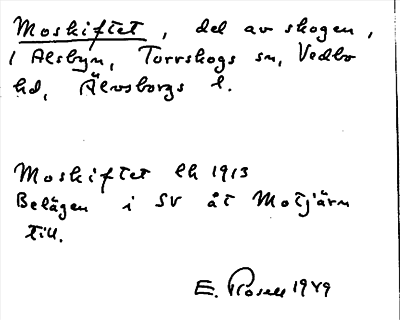 Moskiftet, del av skogen,
i Alsbyn, Torrskogs sn, Vedbo
hd, Älvsborgs l.
Moskiftet lh 1913
Belägen i SV åt Motjärn
till.
E. Rosell 1949